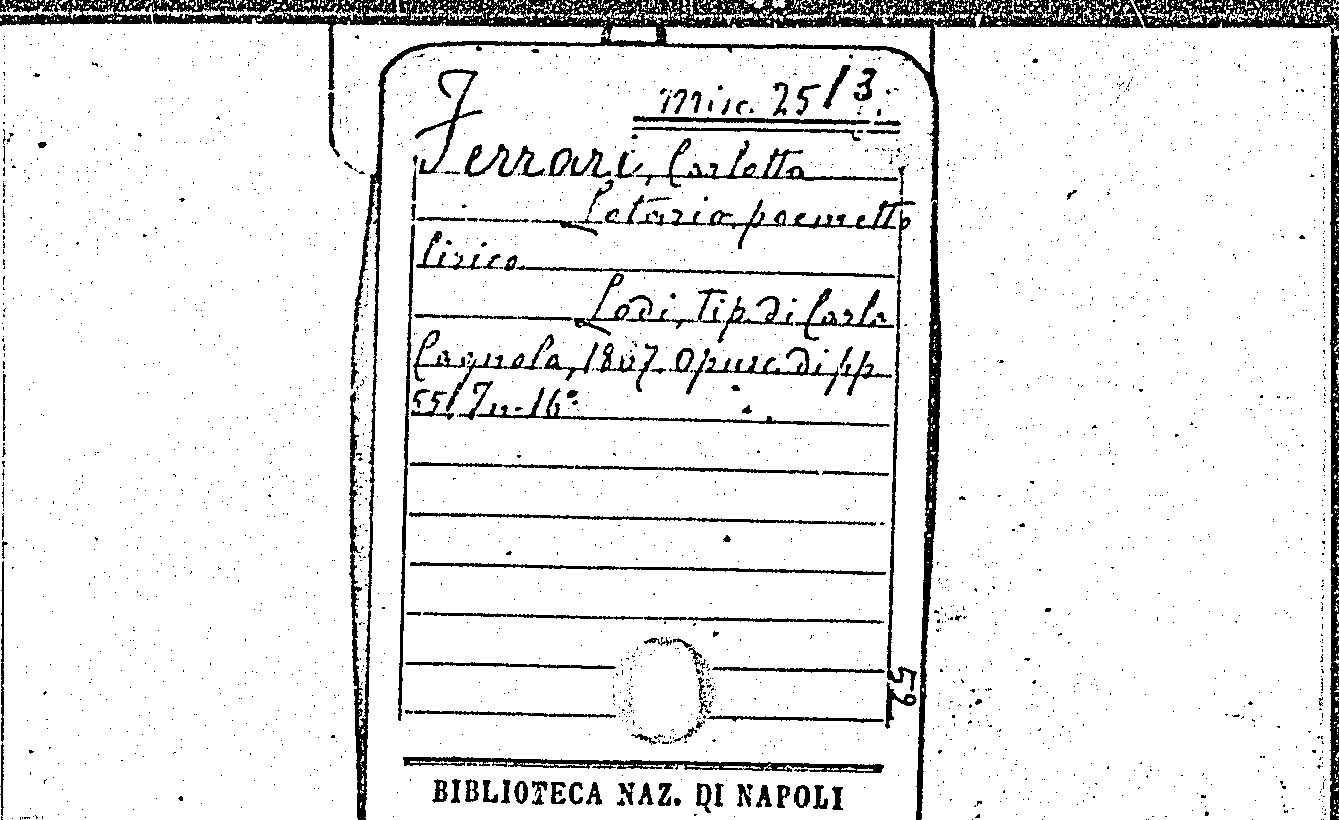 Misc. 25/3.
Ferrari, Carlotta
Lotario, poemetto
lirico
Lodi, Tip. di Carlo
Cagnola, Opusc. di pp
55/ In-16°
52
BIBLIOTECA NAZ. DI NAPOLI